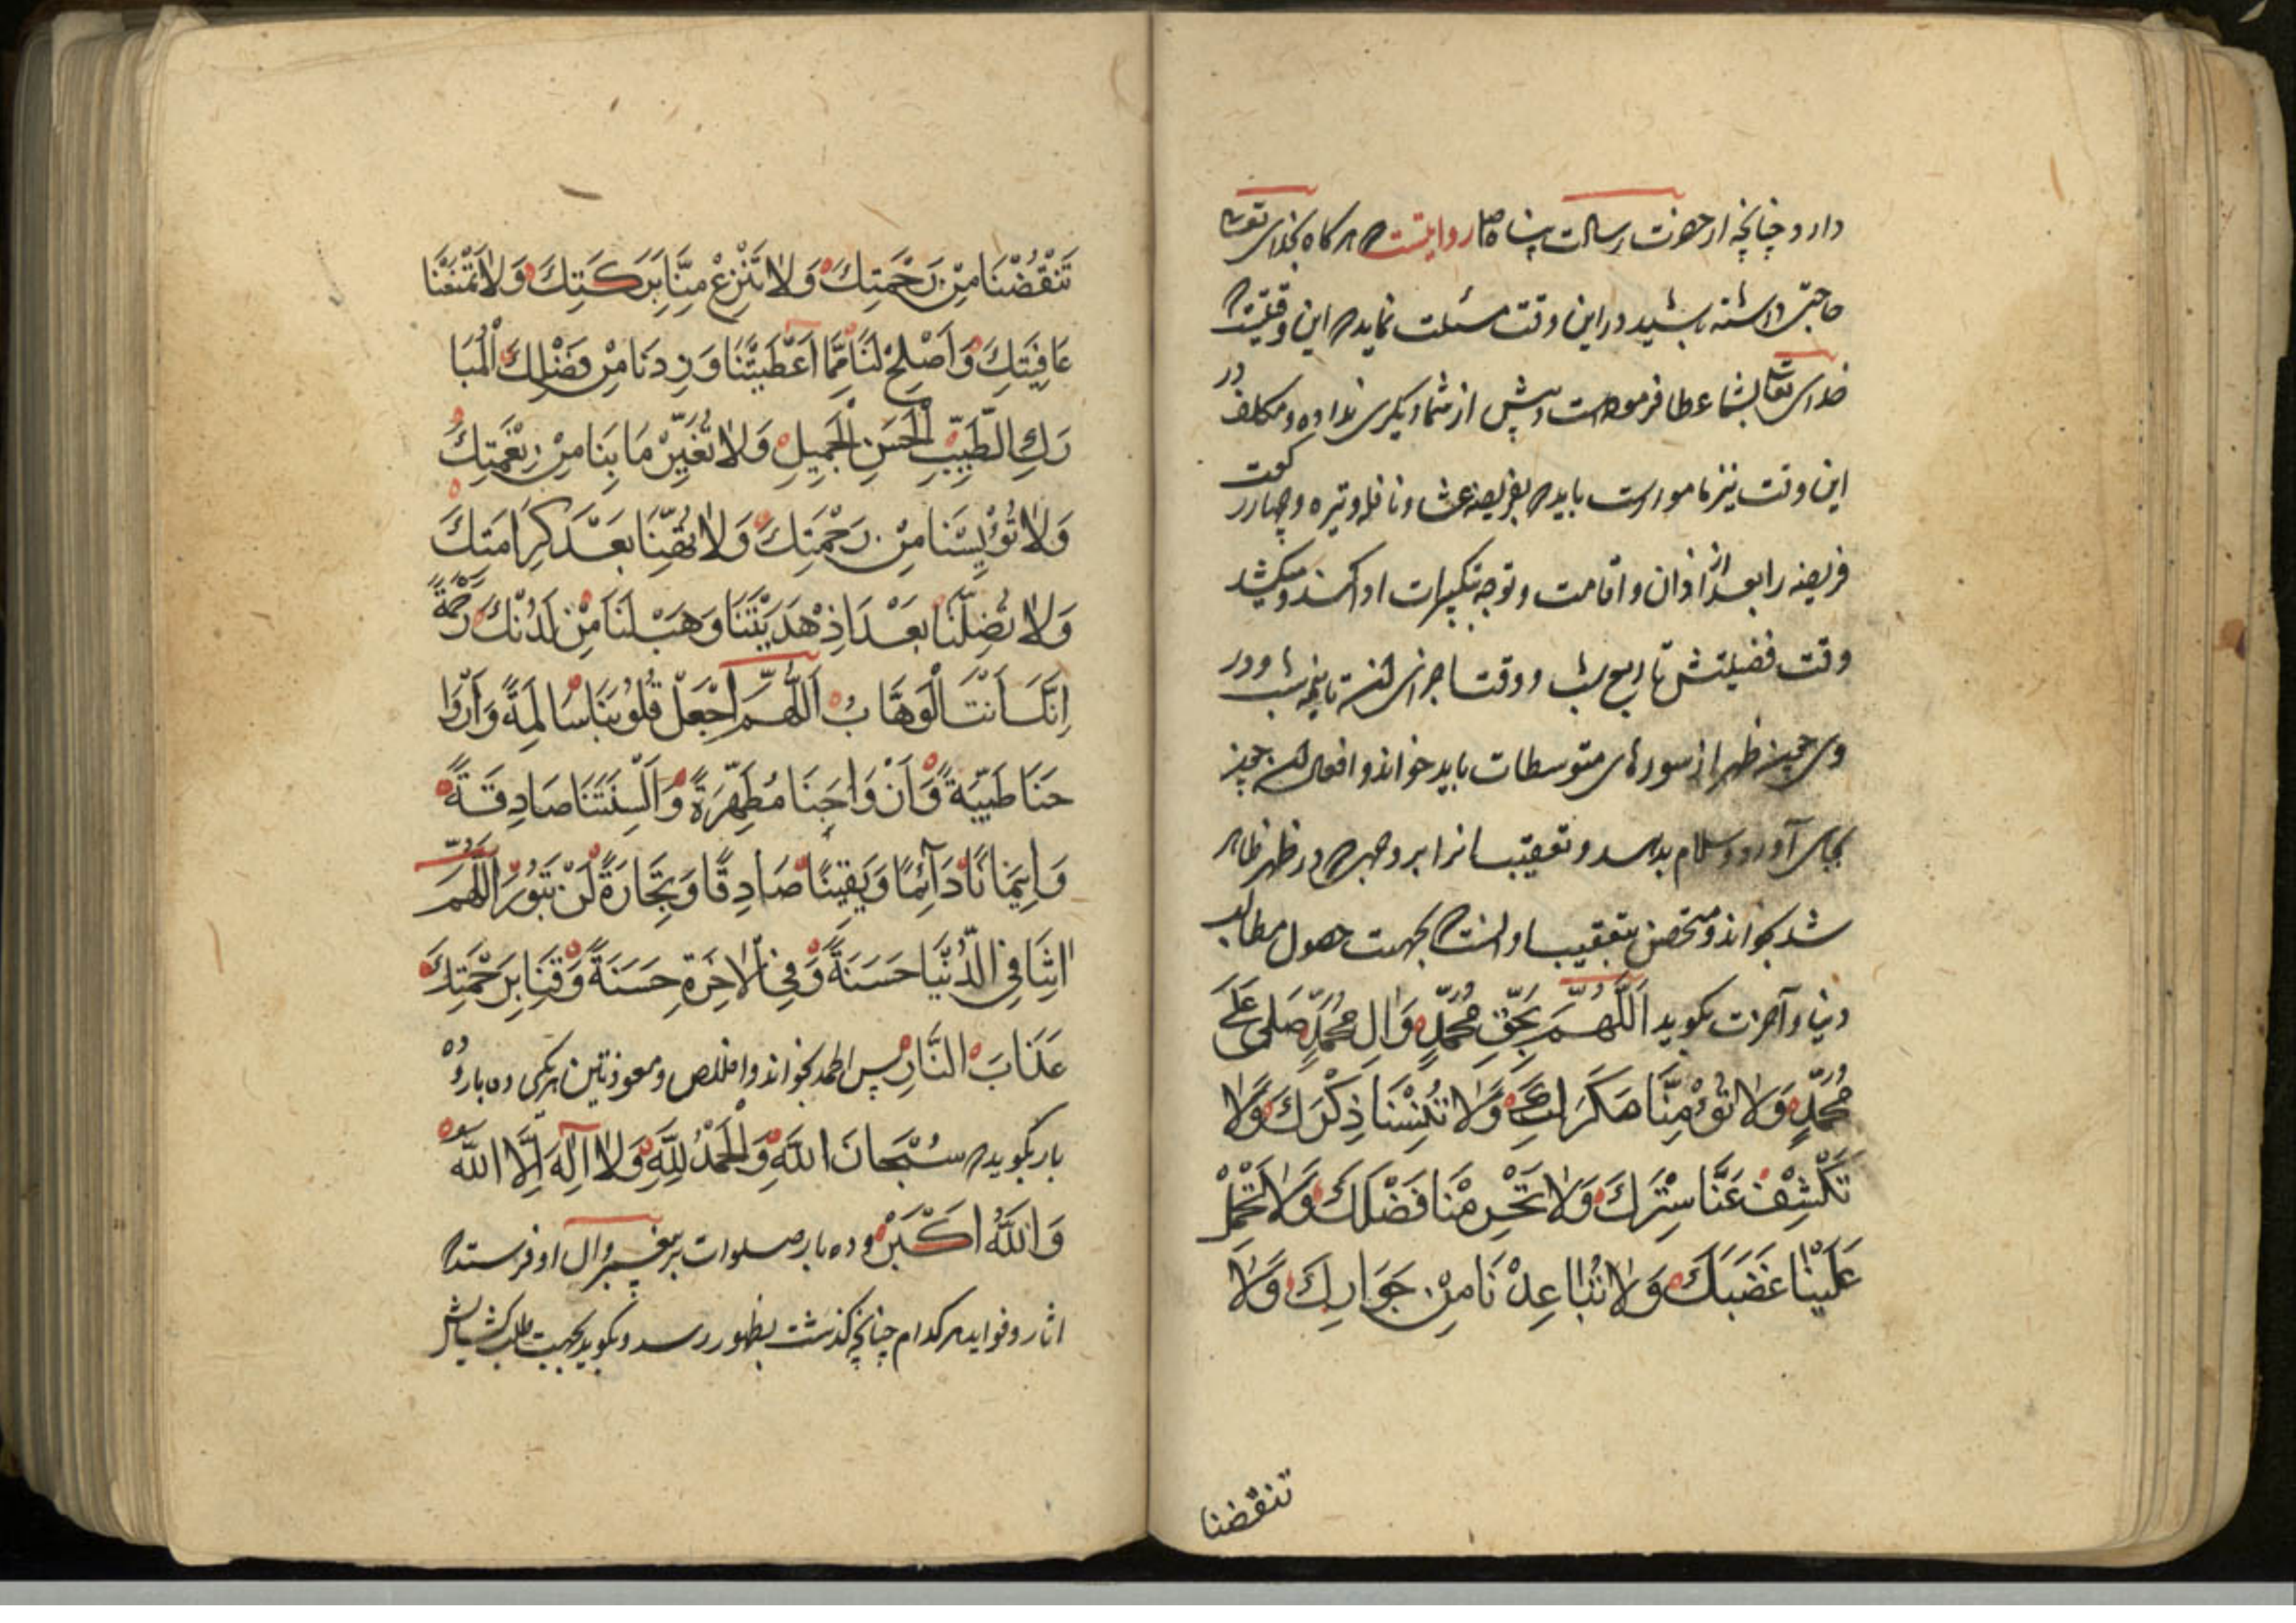 دارد و چنانچه از حضرت رسالت پناه ص روایتست که هرکاه بخدای تعالی
حاجتی داشته باشید در این وقت مسئلت نماید که این وقتیست که
خدای تعالی بشما عطا فرموده است و پیش از شما دیکری نداده و مکلف در
این وقت نیز مامور است باید که بفریضه عشا و نافله وتیره و چهار رکعت
فریضه را بعد از اذان و اقامت و توجه تکبیرات ادا کند و میکشد
وقت فضیلتش تا ربع شب و وقت اجزای آن تا نیمه شب و در
وی همچنین ظهر از سورهای متوسطات باید خواند و افعال آن همچنین
بجای آورد و سلام بدهد و تعقیبات انرا بر وجهی که در ظهر ظاهر
شد بخواند و مختص بتعقیب او است که بجهت حصول مطالب
دنیا و آخرت بکوید اَللّٰهُمَّ بِحَقِّ مُحَمَّدٍ وَاٰلِ مُحَمَّدٍ صَلِّ عَلٰی
مُحَمَّدٍ وَلاٰ تُؤْمِنَّا مَكْرَكَ وَلاٰ تُنْسِنَا ذِكْرَكَ وَلاٰ
تَكْشِفْ عَنَّا سِتْرَكَ وَلاٰ تَحْرِمْنَا فَضْلَكَ وَلاٰ تُحْلِلْ
عَلَيْنٰا غَضَبَكَ وَلاٰ تُبٰاعِدْنَا مِنْ جَوَارِكَ وَلاٰ
تنقضنا
تَنْقُضْنَا مِنْ رَحْمَتِكَ وَلاٰ تَنْزِعْ مِنَّا بَرَكَتِكَ وَلاٰ تَمْنَعْنَا
عَافِيَتِكَ وَاَصْلِحْ لَنَا مِمَّا اَعْطَيْتَنَا وَزِدنَا مِنْ فَضْلِكَ الْمُبَا
رَكِ الطَّيِّبِ الْحَسَنِ الْجَمِيلِ وَلاٰ تُغَيِّرْ مَا بِنَا مِنْ نِعْمَتِكَ
وَلاٰ تُؤْيِسْنَا مِنْ رَحْمَتِكَ وَلاٰ تُهِنَّا بَعْدَ كَرَامَتِكَ
وَلاٰ تُضِلَّنَا بَعْدَ اِذْ هَدَيْتَنَا وَهَبْ لَنَا مِنْ لَدُنْكَ رَحْمَةً
اِنَّكَ اَنْتَ الْوَهَّابُ اَللّٰهُمَّ اجْعَلْ قُلُوبَنَا سَالِمَةً وَاَرْوٰا
حَنَا طَيِّبَةً وَاَزْوَاجَنَا مُطَهَّرَةً وَاَلْسِنَتَنَا صَادِقَةً
وَاِيمٰانًا دَآئِمًا وَيَقِينًا صَادِقًا وَتِجَارَةً لَنْ تَبُورَ اَللّٰهُمَّ
اٰتِنَا فِي الدُّنْيَا حَسَنَةً وَفِي الْاٰخِرَةِ حَسَنَةً وَقِنَا بِرَحْمَتِكَ
عَذَابَ النَّارِ پس الحمد بخواند و اخلاص و معوذتین هر یکی ده بار و ده
بار بکوید که سُبْحَانَ اللّٰهِ وَالْحَمْدُ لِلّٰهِ وَلاٰ اِلٰهَ اِلَّا اللّٰه
وَاللّٰهُ اَكْبَرْ و ده بار صلوات بر پیغمبر و ال او فرستد که
اثار و فواید هر کدام چنانچه کذشت بظهور رسد و بکوید بجهت طلب کشایش